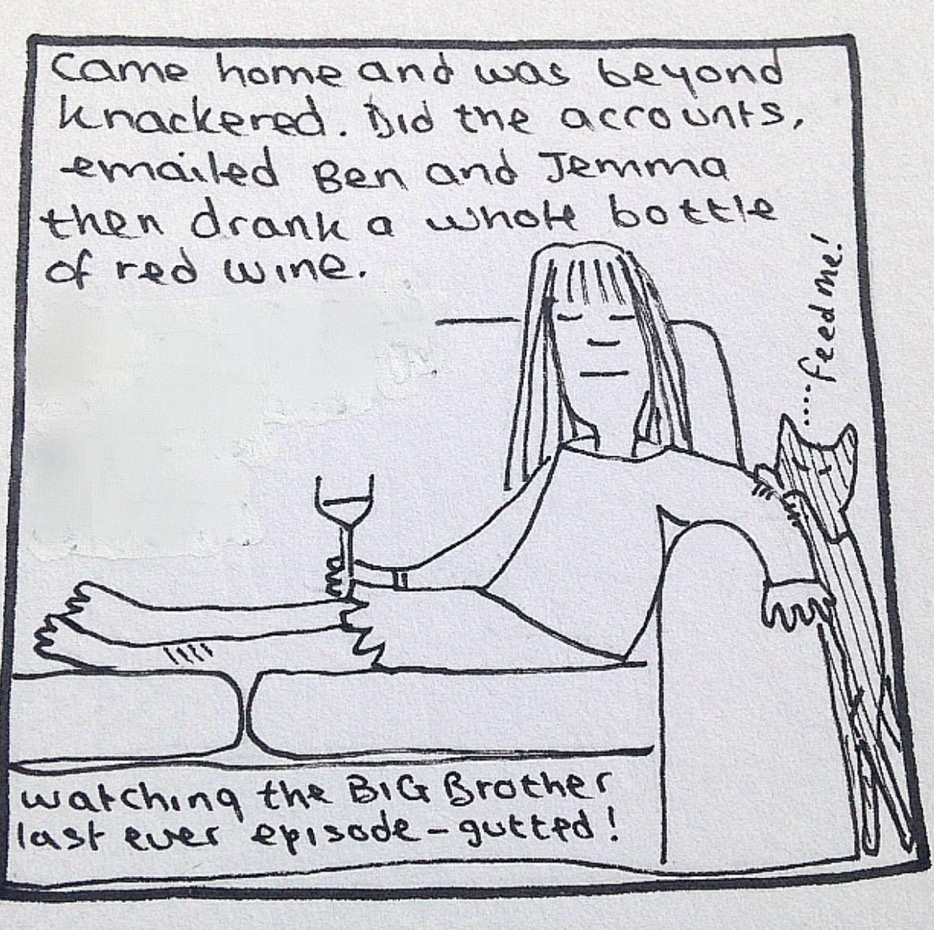 Came home and was beyond
knackered. Did the accounts,
emailed Ben and Jemma
then drank a whole bottle
of red wine.
....feed me!
watching the BIG Brother
last ever episode - gutted!